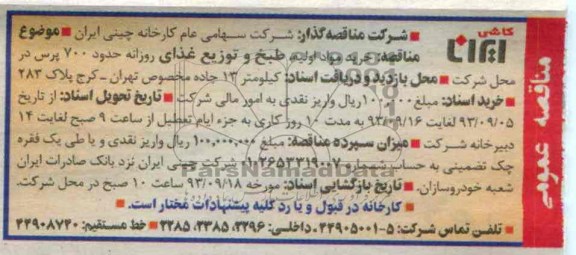 مناقصه عمومی
کاشی
ایرانا
■ شرکت مناقصه‌گذار: شرکت سهامی عام کارخانه چینی ایران ■ موضوع
مناقصه: خرید مواد اولیه، طبخ و توزیع غذای روزانه حدود ۷۰۰ پرس در
محل شرکت ■ محل بازدید و دریافت اسناد: کیلومتر ۱۳ جاده مخصوص تهران ـ کرج پلاک ۲۸۳
■ خرید اسناد: مبلغ ریال واریز نقدی به امور مالی شرکت ■ تاریخ تحویل اسناد: از تاریخ
۹۳/۰۹/۰۵ لغایت ۹۳/۰۹/۱۶ به مدت ۱۰ روز کاری به جزء ایام تعطیل از ساعت ۹ صبح لغایت ۱۴
دبیرخانه شرکت ■ میزان سپرده مناقصه: مبلغ ۱۰۰,۰۰۰,۰۰۰ ریال واریز نقدی و یا طی یک فقره
چک تضمینی به حساب شماره ۰۱۰۲۶۵۳۳۱۹۰۰۷ شرکت چینی ایران نزد بانک صادرات ایران
شعبه خودروسازان. ■ تاریخ بازگشایی اسناد: مورخه ۹۳/۰۹/۱۸ ساعت ۱۰ صبح در محل شرکت.
■ کارخانه در قبول و یا رد کلیه پیشنهادات مختار است. ■
■ تلفن تماس شرکت: ۵-۴۴۹۰۵۰۰۱ـ داخلی: ۳۲۹۶، ۳۳۸۵، ۳۲۸۵ ■ خط مستقیم: ۴۴۹۰۸۷۴۰
ParsNamadData